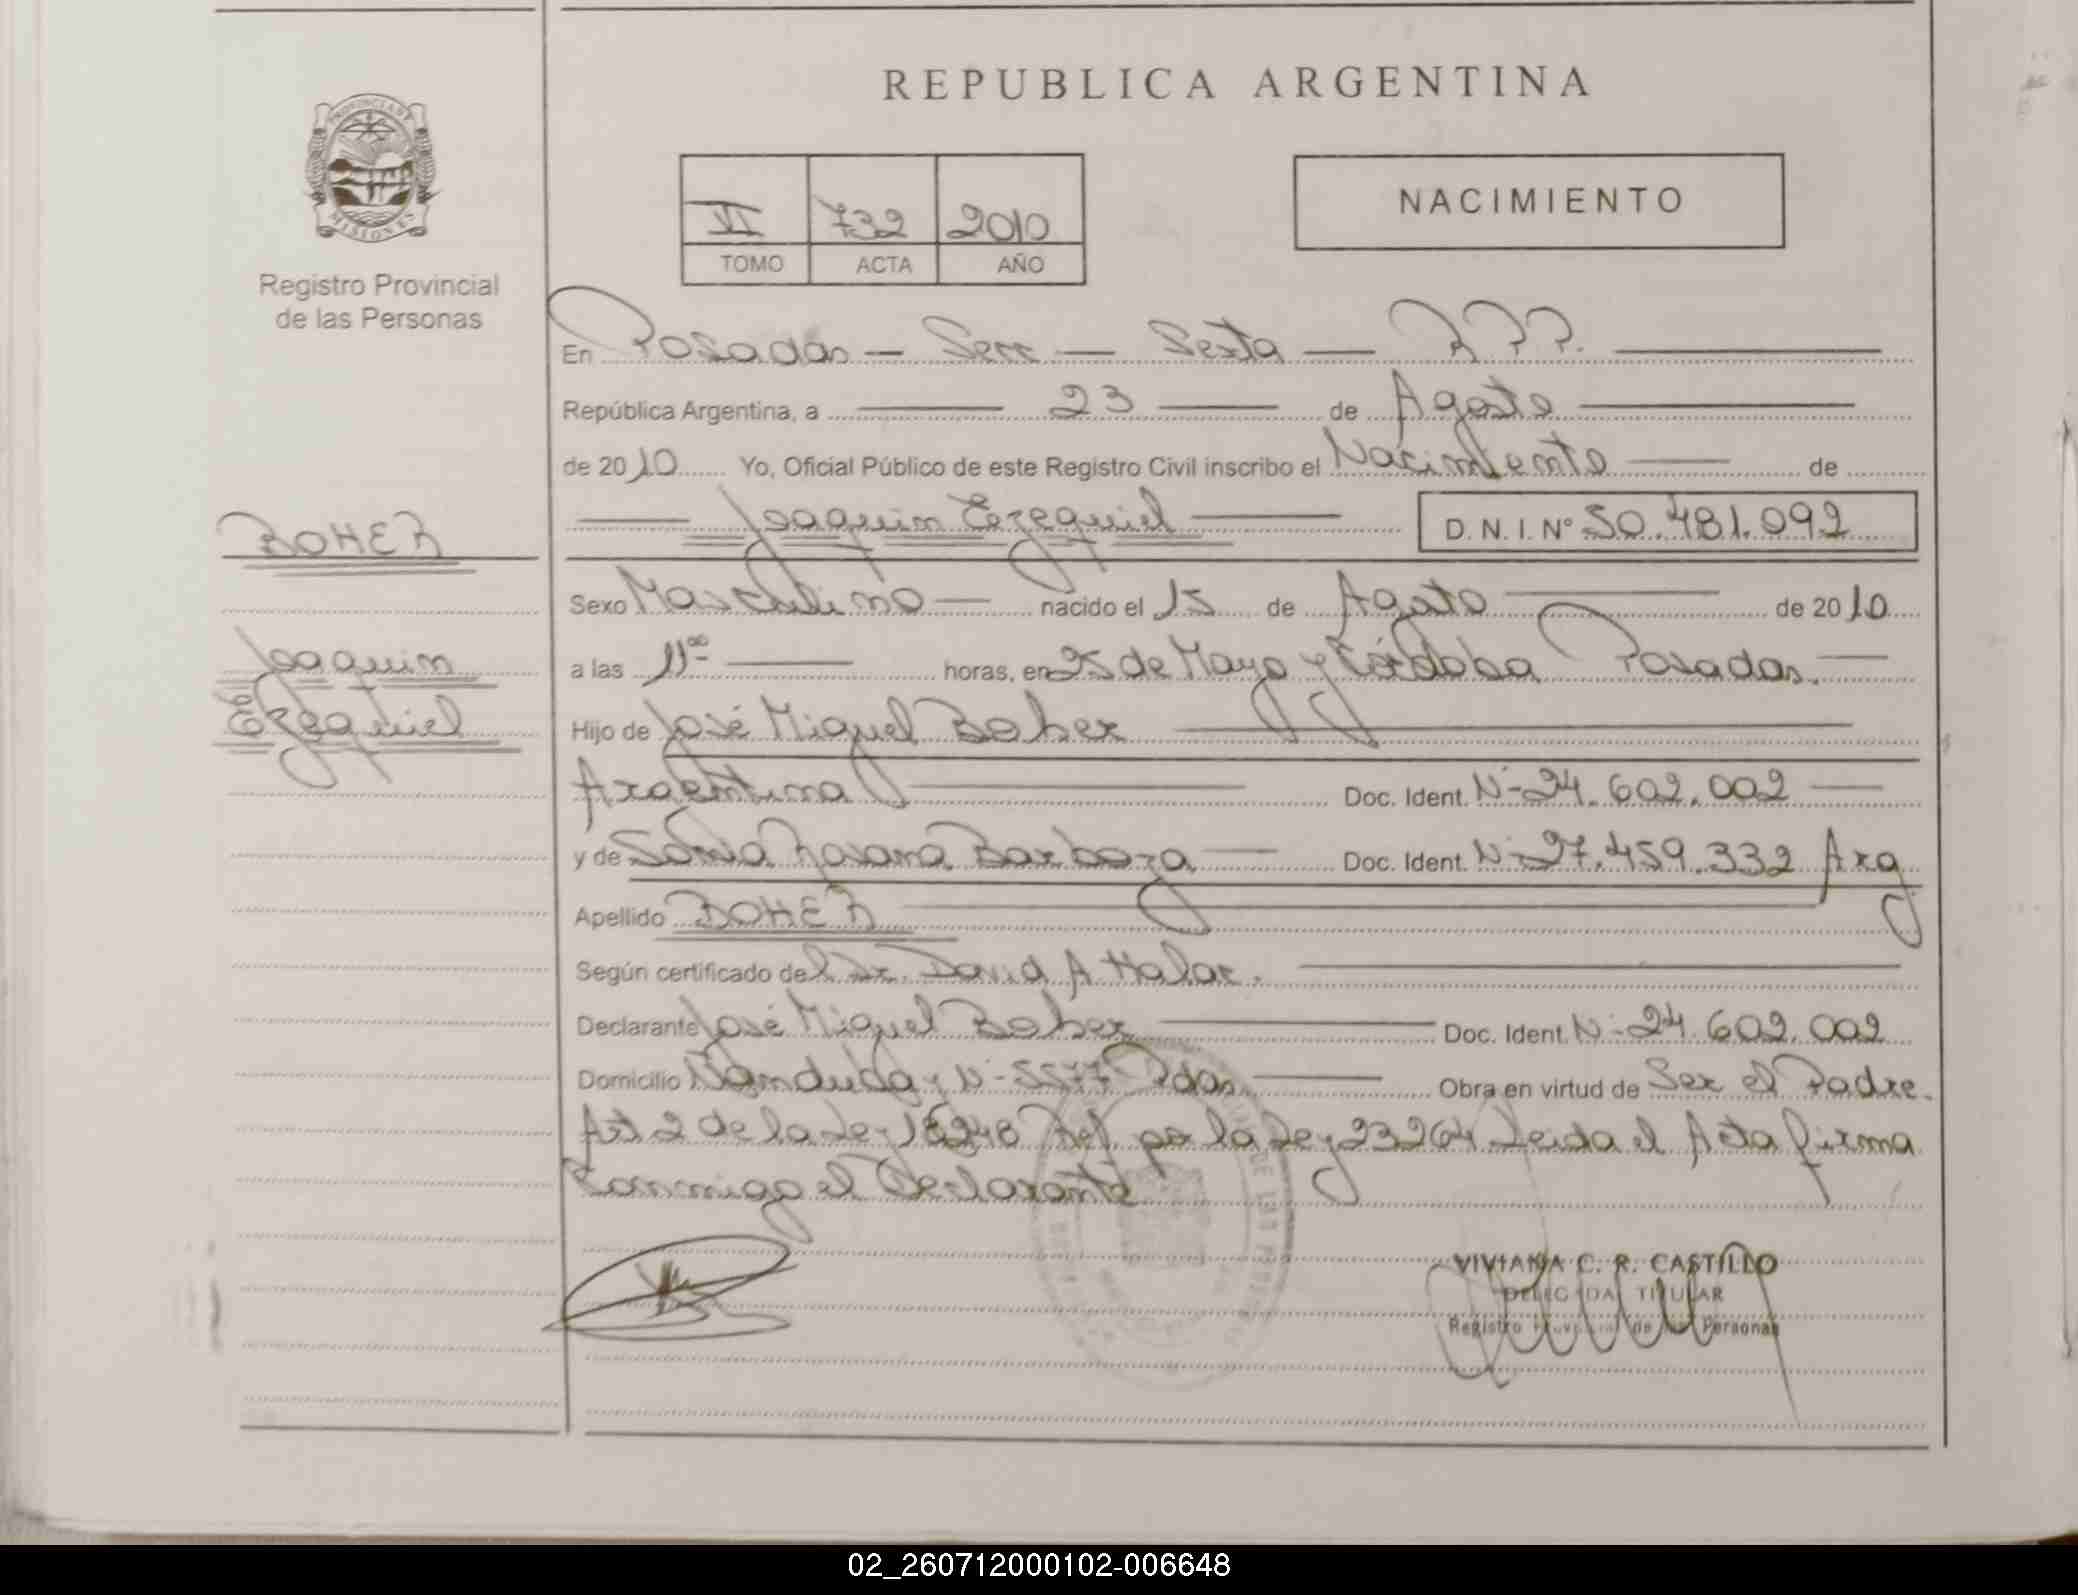 REPUBLICA ARGENTINA
PROVINCIA DE
MISIONES
Registro Provincial
de las Personas
VI 732 2010
TOMO ACTA AÑO
NACIMIENTO
En Posadas — Secc — Sexta — R.P.P.
República Argentina, a 23 de Agosto
de 2010 Yo, Oficial Público de este Registro Civil inscribo el Nacimiento de
Joaquin Ezequiel D. N. I. N° 50.481.092
BOHER
Joaquin
Ezequiel
Sexo Masculino nacido el 15 de Agosto de 2010
a las 11ºº horas, en 25 de Mayo y Córdoba Posadas.
Hijo de José Miguel Boher
Argentina Doc. Ident. Nº 24.602.002
y de Sonia Rosana Barboza Doc. Ident. Nº 27.459.332 Arg
Apellido BOHER
Según certificado del Dr. David A Halac.
Declarante José Miguel Boher Doc. Ident. Nº 24.602.002
Domicilio Pdas. Obra en virtud de Ser el Padre.
Art 2 de la Ley 18248 Ref por la Ley 23264 Leida el Acta firma
Conmigo el Declarante
VIVIANA C. R. CASTILLO
DELEGADA TITULAR
Registro Provincial de las Personas
02_260712000102-006648